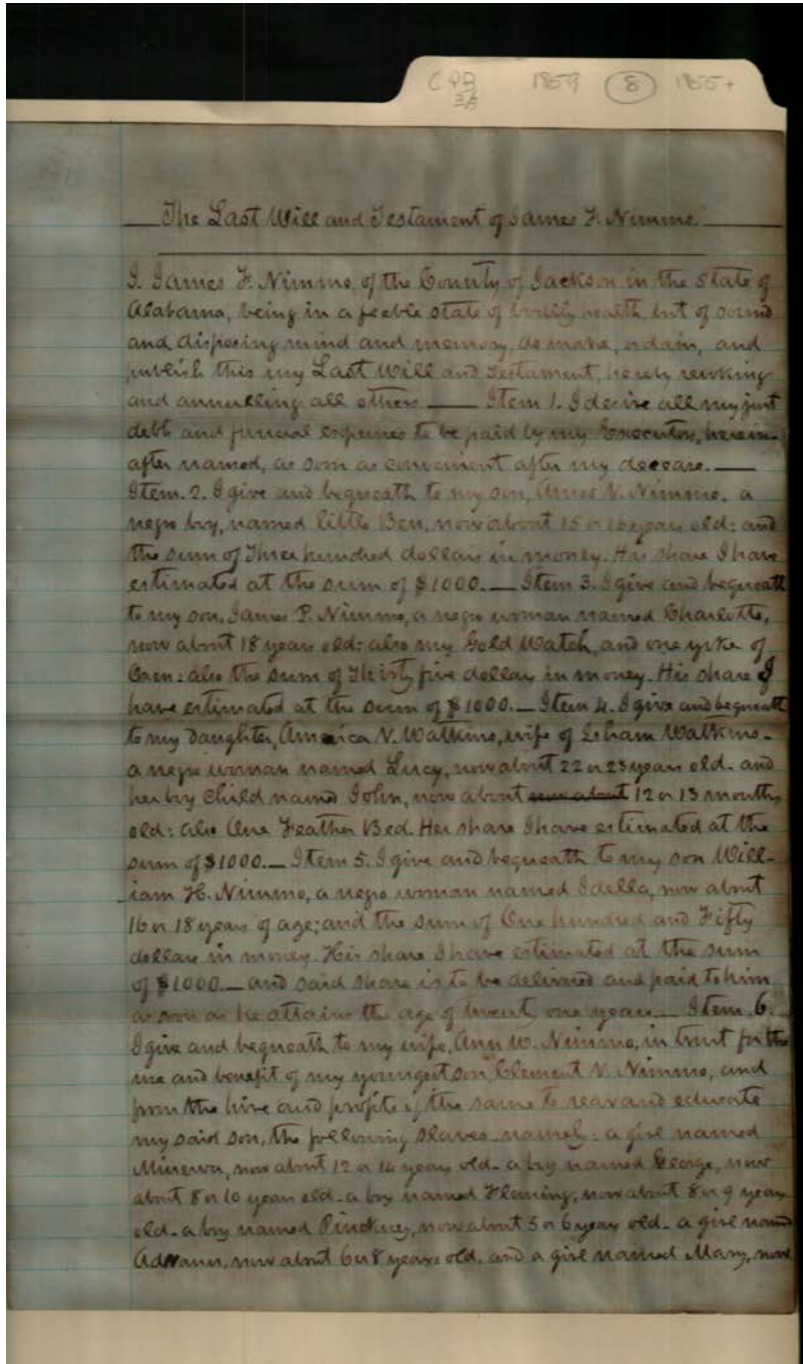 1859 8 1855+
The Last Will and Testament of James F. Nimmo.
I. James F. Nimmo, of the County of Jackson in the State of
Alabama, being in a feeble state of bodily health, but of sound
and disposing mind and memory, do make, ordain, and
publish this my Last Will and Testament, hereby revoking
and annulling all others. — Item 1. I desire all my just
debts and funeral expenses to be paid by my Executors, herein-
after named, as soon as convenient after my decease. —
Item. 2. I give and bequeath to my son, Amos V. Nimmo, a
negro boy, named little Ben, now about 15 or 16 years old: and
the sum of Three hundred dollars in money. His share I have
estimated at the sum of $1000. — Item 3. I give and bequeath
to my son, James P. Nimmo, a negro woman named Charlotte,
now about 18 years old: also my Gold Watch, and one yoke of
Oxen: also the sum of Thirty five dollars in money. His share I
have estimated at the sum of $1000. — Item 4. I give and bequeath
to my Daughter, America V. Watkins, wife of Isham Watkins -
a negro woman named Lucy, now about 22 or 23 years old - and
her boy Child named John, now about now about 12 or 13 months
old: also One Feather Bed. Her share I have estimated at the
sum of $1000. — Item 5. I give and bequeath to my son Will-
iam H. Nimmo, a negro woman named Idella, now about
16 or 18 years of age; and the sum of One hundred and Fifty
dollars in money. His share I have estimated at the sum
of $1000 — and said share is to be delivered and paid to him
as soon as he attains the age of twenty one years. — Item. 6.
I give and bequeath to my wife, Ann W. Nimmo, in trust for the
use and benefit of my youngest son, Clement V. Nimmo, and
from the hire and profits of the same to rear and educate
my said son, the following slaves namely: a girl named
Minerva, now about 12 or 14 years old - a boy named George, now
about 8 or 10 years old - a boy named Fleming, now about 8 or 9 years
old - a boy named Pinckney, now about 5 or 6 years old - a girl named
now about 6 or 8 years old, and a girl named Mary, now